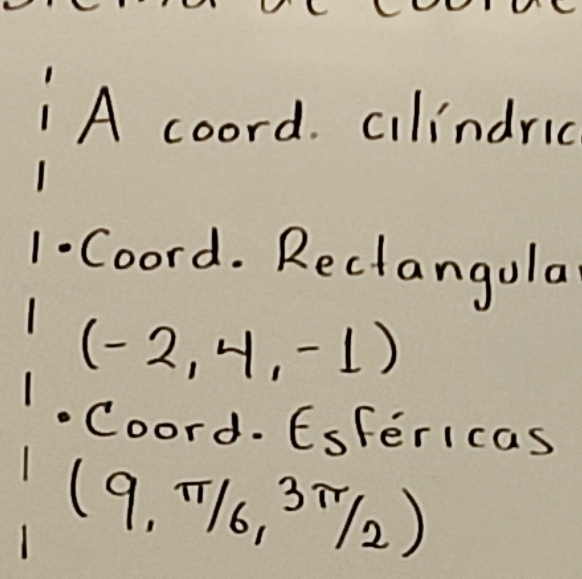 A coord. cilíndric
• Coord. Rectangular
(-2, 4, -1)
• Coord. Esféricas
(9, π/6, 3π/2)